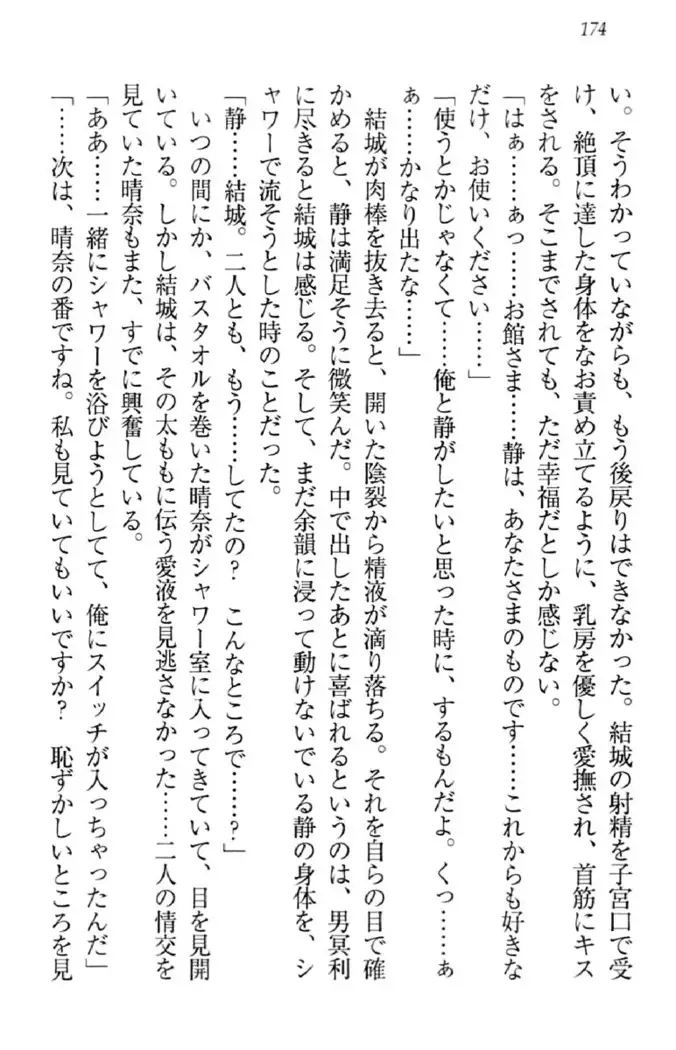 174
い。そうわかっていながらも、もう後戻りはできなかった。結城の射精を子宮口で受
け、絶頂に達した身体をなお責め立てるように、乳房を優しく愛撫され、首筋にキス
をされる。そこまでされても、ただ幸福だとしか感じない。
「はぁ……ぁっ……お館さま……静は、あなたさまのものです……これからも好きな
だけ、お使いください……」
「使うとかじゃなくて……俺と静がしたいと思った時に、するもんだよ。くっ……ぁ
ぁ……かなり出たな……」
結城が肉棒を抜き去ると、開いた陰裂から精液が滴り落ちる。それを自らの目で確
かめると、静は満足そうに微笑んだ。中で出したあとに喜ばれるというのは、男冥利
に尽きると結城は感じる。そして、まだ余韻に浸って動けないでいる静の身体を、シ
ャワーで流そうとした時のことだった。
「静……結城。二人とも、もう……してたの？　こんなところで……？」
いつの間にか、バスタオルを巻いた晴奈がシャワー室に入ってきていて、目を見開
いている。しかし結城は、その太ももに伝う愛液を見逃さなかった……二人の情交を
見ていた晴奈もまた、すでに興奮している。
「ああ……一緒にシャワーを浴びようとしてて、俺にスイッチが入っちゃったんだ」
「……次は、晴奈の番ですね。私も見ていてもいいですか？　恥ずかしいところを見